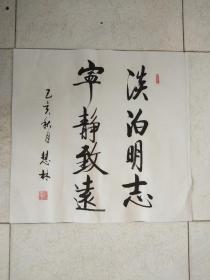 淡泊明志
寧静致遠
乙亥秋月 慧林